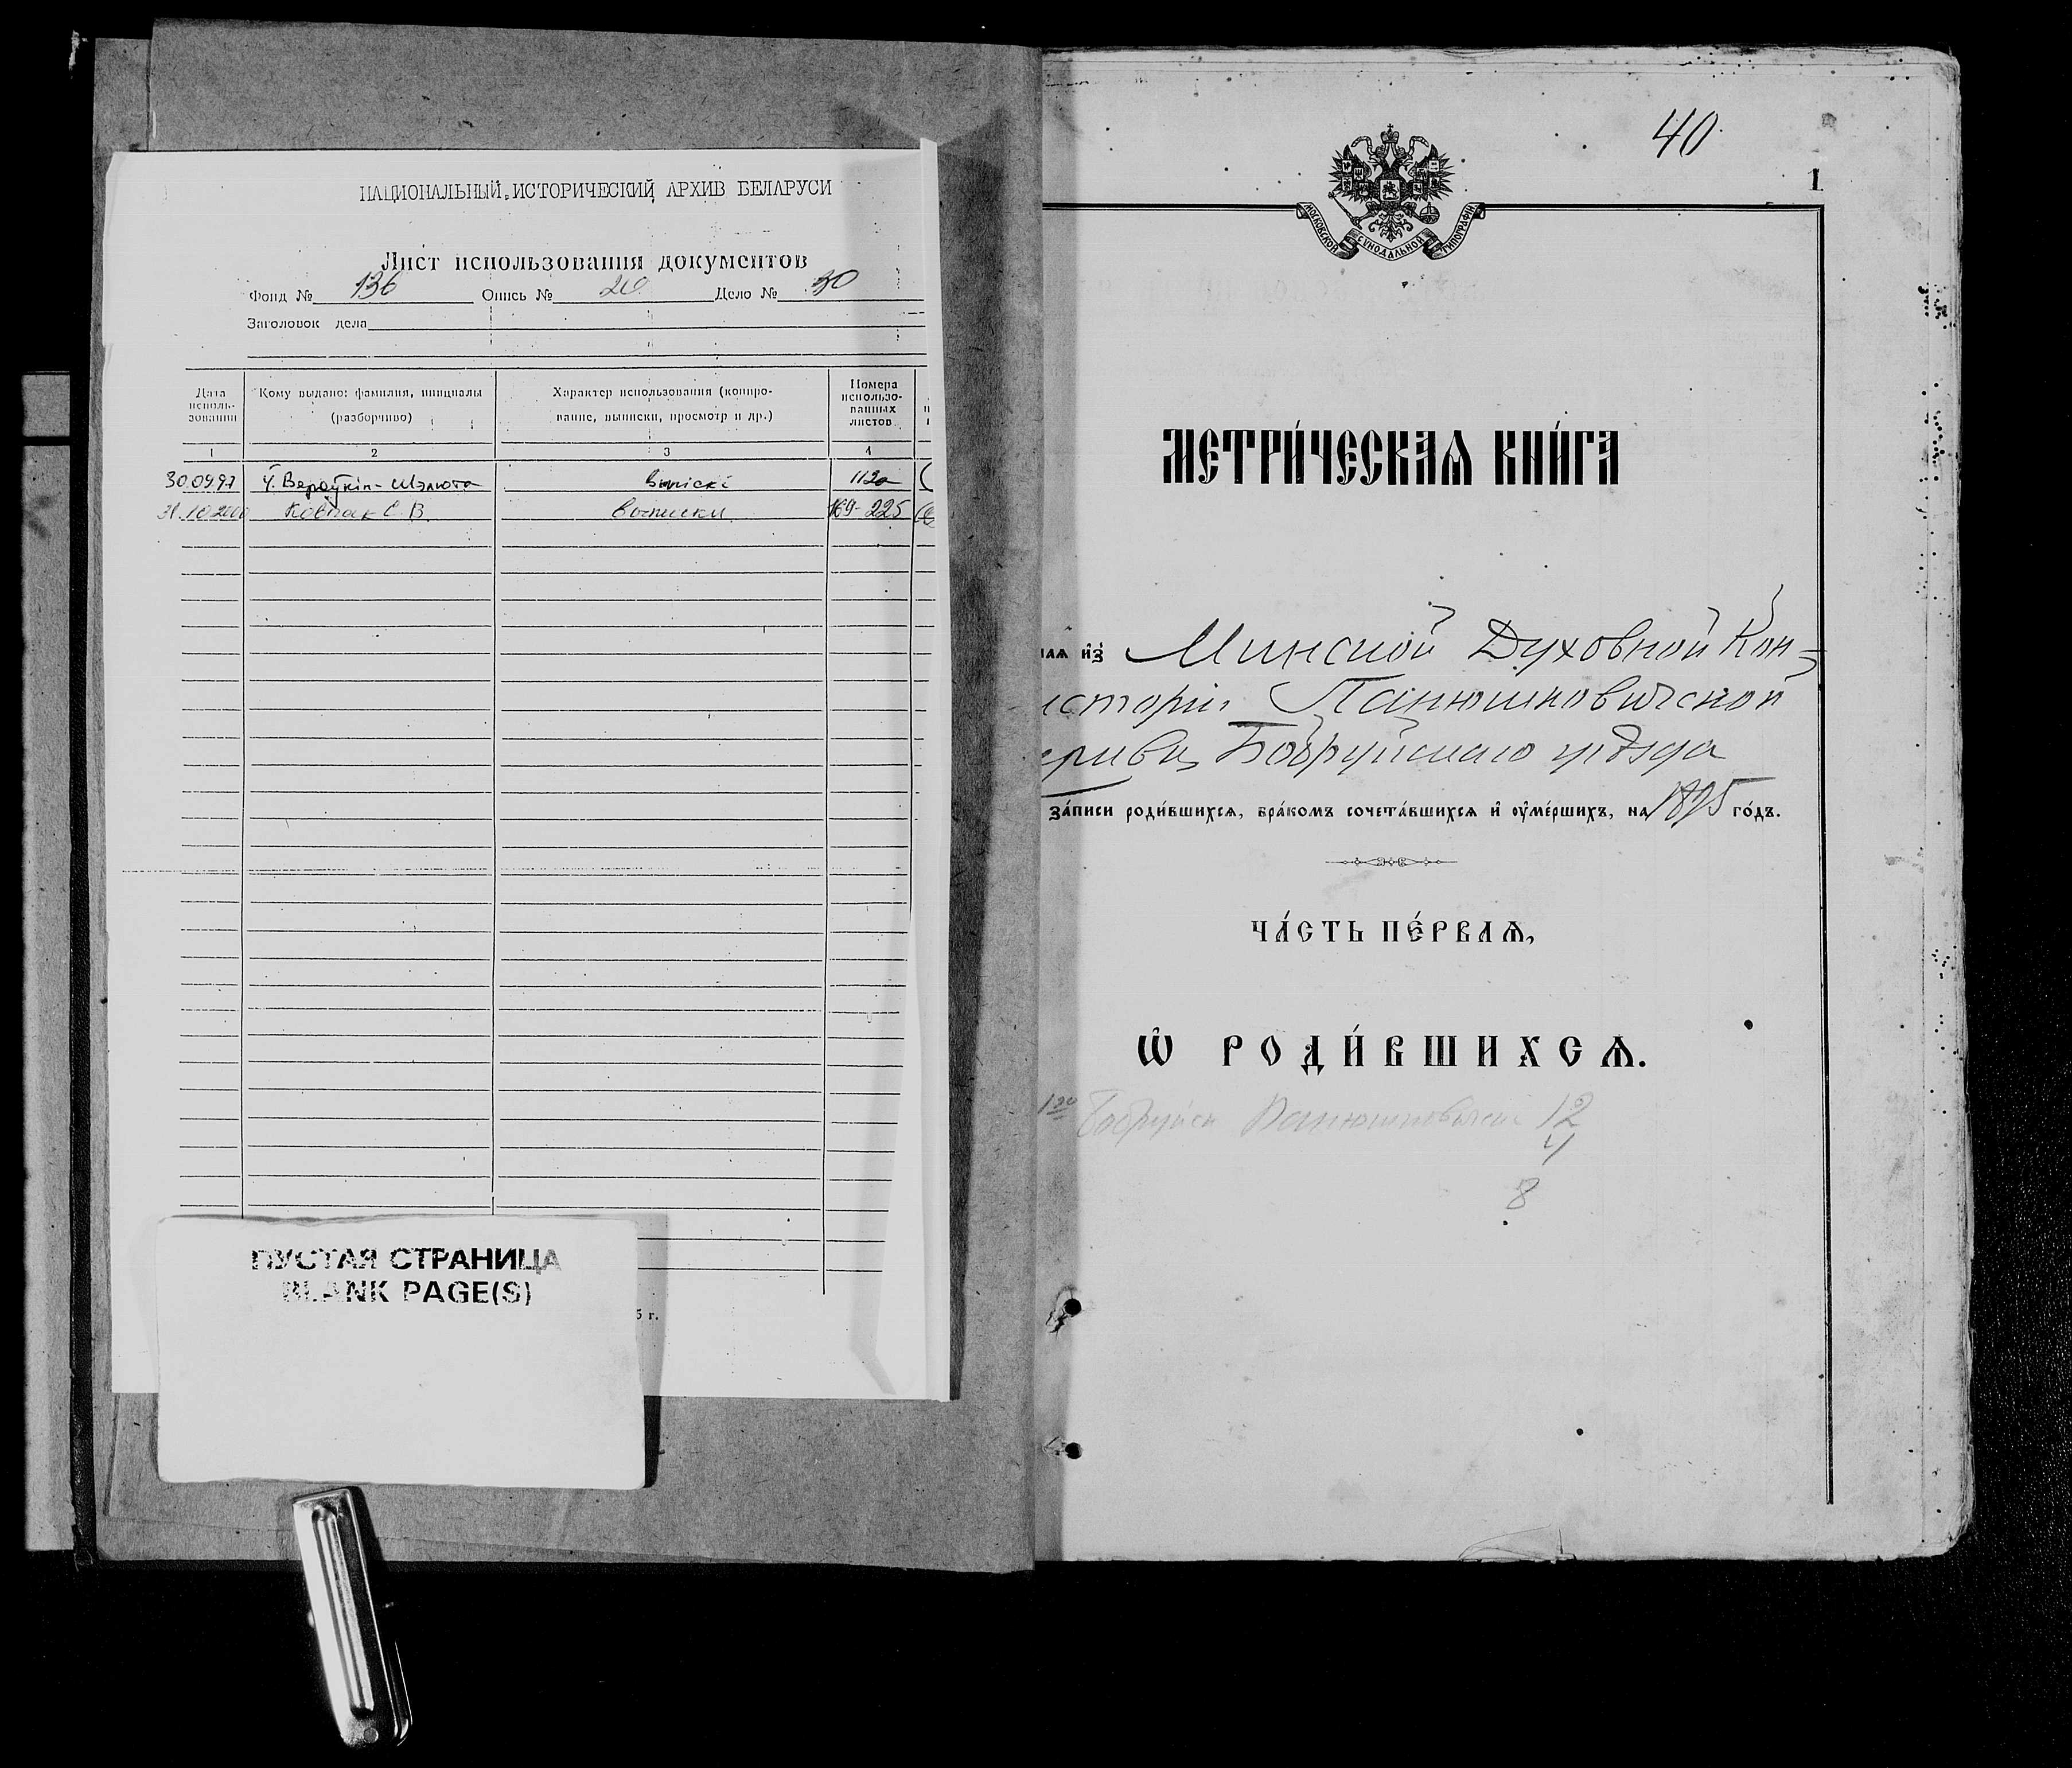 НАЦИОНАЛЬНЫЙ ИСТОРИЧЕСКИЙ АРХИВ БЕЛАРУСИ
Лист использования документов
Фонд № 136 Опись № Дело № 30
Заголовок дела
Дата использования
Кому выдано: фамилия, инициалы (разборчиво)
Характер использования (копирование, выписки, просмотр и др.)
Номера использованных листов
1 2 3 4
30.09.97 выпіскі
31.10.2000 С. В. выписки 169-225
ПУСТАЯ СТРАНИЦА
BLANK PAGE(S)
5 г.
40
1
МОСКОВСКОЙ СѴНОДАЛЬНОЙ ТИПОГРАФІИ
МЕТРИ́ЧЕСКАѦ КНИ́ГА
из̾ Минской Духовной Кон-
исторіи Панюшковичской
Бобруйскаго уѣзда
за́писи роди́вшихсѧ, бра́комъ сочета́вшихсѧ и҆ оу҆ме́ршихъ, на 1895 го́дъ.
ЧА́СТЬ ПЕ́РВАѦ,
Ѡ҆ РОДИ́ВШИХСѦ.
12
8